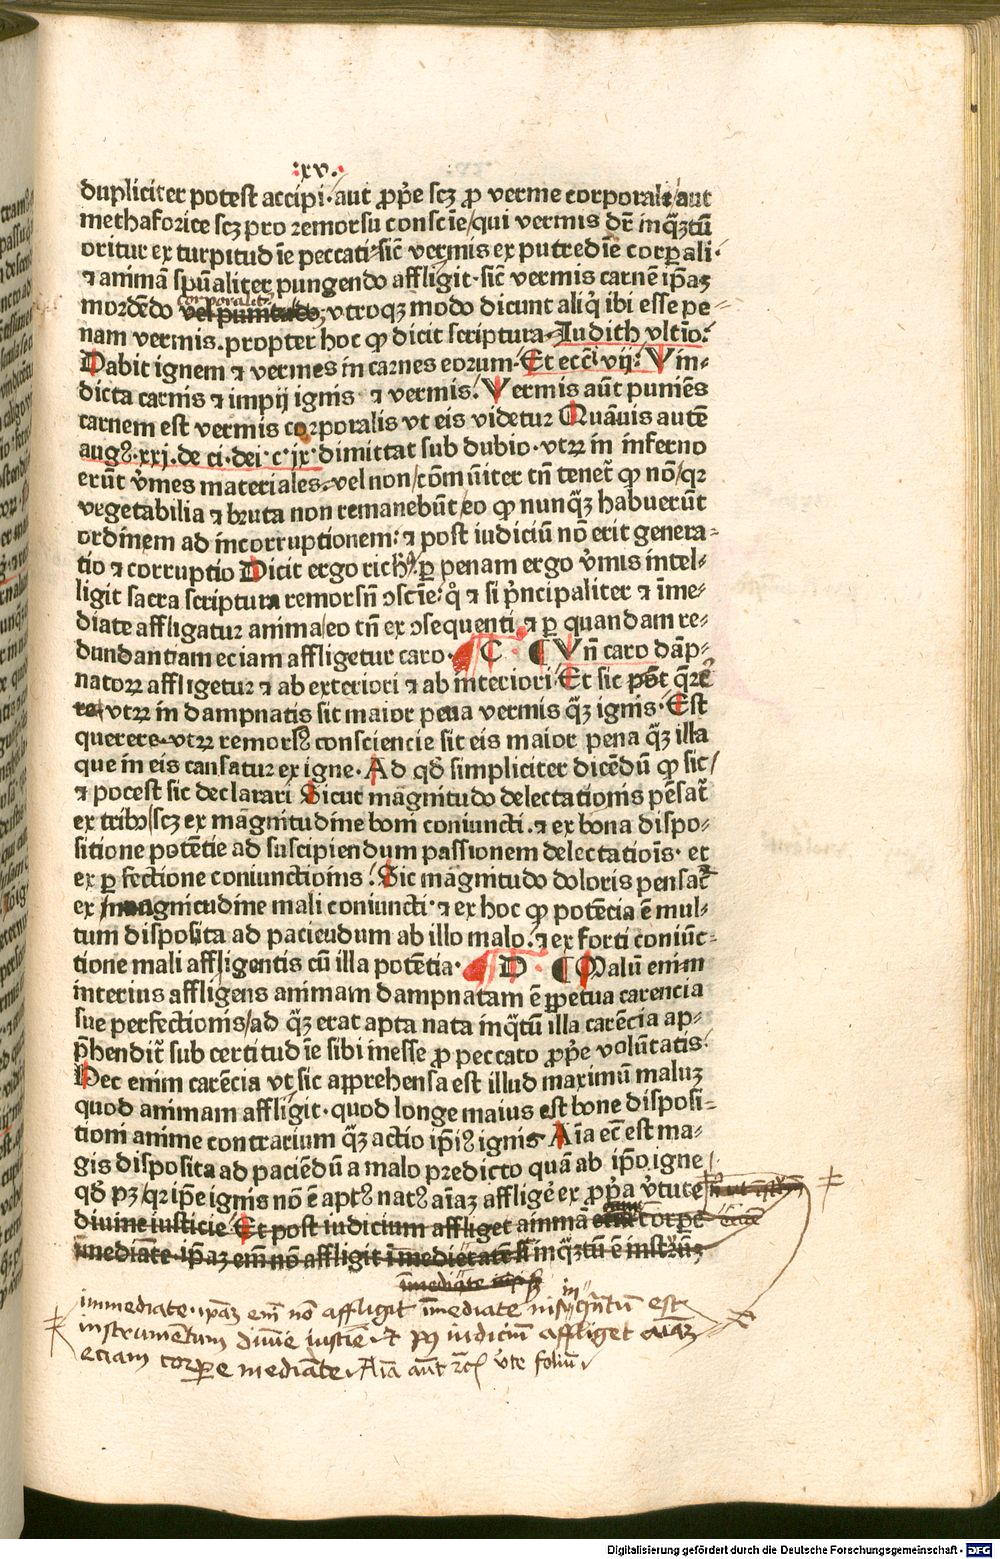 :xv.
dupliciter potest accipi·aut ꝓp̄e scꝫ ꝓ verme corporali/aut
methaforice scꝫ pro remorsu consciē̄/qui vermis dr̄ inq̄ꝫtū
oritur ex turpitudīe peccati·sic̄ vermis ex putredīe corꝑali·
⁊ animā spūaliter pungendo affligit·sic̄ vermis carnē ip̄aꝫ
mordēdo corporaliter vtroqꝫ modo dicunt aliq̇ ibi esse pe-
nam vermis.propter hoc ꝙ dicit scriptura·Iudith vltīo.
Dabit ignem ⁊ vermes in carnes eorum·Et eccī vij. Vin-
dicta carnis ⁊ impij ignis ⁊ vermis. Vermis aūt puniēs
carnem est vermis corporalis vt eis videtur Quāuis autē
augꝰ.xxj.de ci.dei·c·ix·dimittat sub dubio·vtꝝ in inferno
erūt v̄mes materiales·vel non/cōmūiter tn̄ tenet̄ ꝙ nō/qꝛ
vegetabilia ⁊ bruta non remanebūt/eo ꝙ nunq̄ꝫ habuerūt
ordinem ad incorruptionem: ⁊ post iudiciū nō erit genera-
tio ⁊ corruptio Dicit ergo rich᷒.ꝑ penam ergo v̄mis intel-
ligit sacra scriptura remorsū ↄscīe: q̇ ⁊ si p̄ncipaliter ⁊ īme-
diate affligatur anima/eo tn̄ ex ↄsequenti ⁊ ꝑ quandam re-
dundantiam eciam affligetur caro. C ¶ Vn̄ caro dāp-
natoꝝ affligetur ⁊ ab exteriori ⁊ ab interiori·Et sic pōt q̄re
re·vtꝝ in dampnatis sit maior pena vermis q̄ꝫ ignis·Est
querere·vtꝝ remorsꝰ consciencie sit eis maior pena q̄ꝫ illa
que in eis causatur ex igne·Ad qd̄ simpliciter dicēdū ꝙ sic/
⁊ potest sic declarari Sicut māgnitudo delectationis pēsat̄
ex tribꝰ/scꝫ ex māgnitudine boni coniuncti.⁊ ex bona dispo-
sitione potētie ad suscipiendum passionem delectatiōis· et
ex ꝑfectione coniunctionis. Sic māgnitudo doloris pensat̄
ex magnitudine mali coniuncti·⁊ ex hoc ꝙ potēcia ē mul-
tum disposita ad paciendum ab illo malo.⁊ ex forti coniūc-
tione mali affligentis cū illa potētia· D ¶ Malū enim
interius affligens animam dampnatam ē ꝑpetua carencia
sue perfectionis/ad q̄ꝫ erat apta nata inq̄tū illa carēcia ap-
p̄hendit̄ sub certitudīe sibi inesse ꝓ peccato ꝓp̄e volūtatis.
Hec enim carēcia vt sic apprehensa est illud maximū maluꝫ
quod animam affligit·quod longe maius est bone disposi-
tioni anime contrarium q̄ꝫ actio ip̄iꝰ ignis Aīa ec̄ est ma-
gis disposita ad paciēdū a malo predicto quā ab ip̄o igne/
qd̄ pꝫ/qꝛ ip̄e ignis nō ē aptꝰ natꝰ aīaꝫ affligē ex ꝓp̄a v̄tute
diuine iusticie Et post iudicium affliget animā cum corpe
īmediate·ip̄aꝫ em̄ nō affligit īmediate inq̄ꝫtū ē instr̄ū
īmediate
immediate·ipāꝫ em̄ nō affligit īmediate nisi inq̄ntum est
instrumentum diuīe iustīe Et pꝰ iudiciū affliget
eciam corꝑe mediāte Aīa aūt rc̄ v̄te foliū
Digitalisierung gefördert durch die Deutsche Forschungsgemeinschaft - DFG